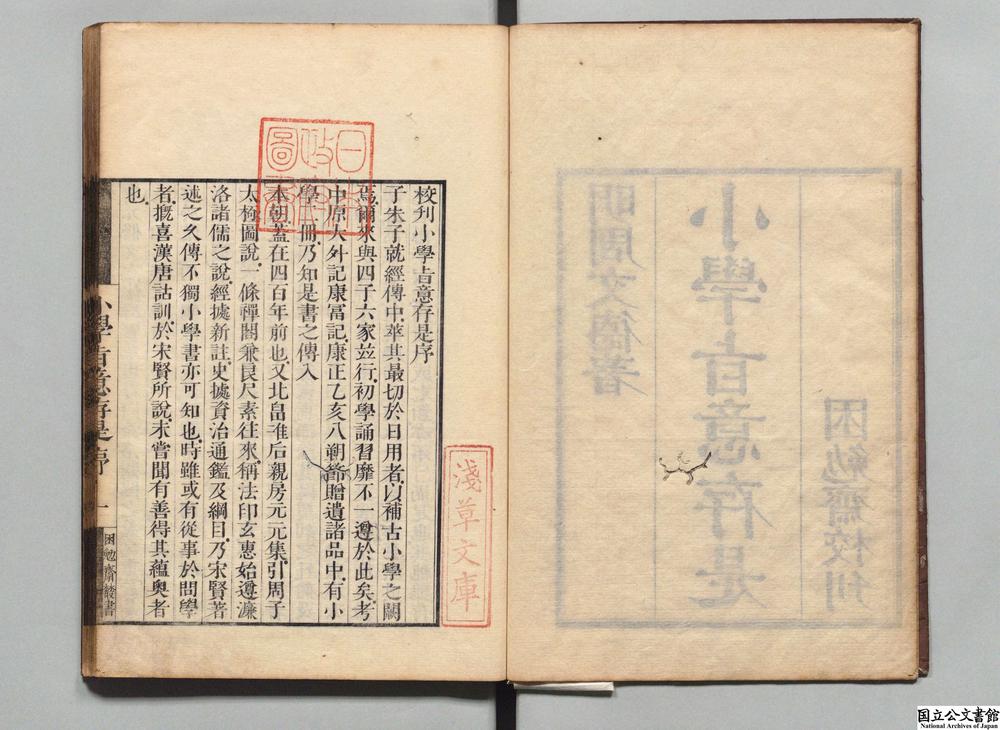 明周文德著
小學旨意存是
困勉齋校刋
校刋小學旨意存是序
子朱子就經傳中、萃其最切於日用者、以補古小學之闕
焉、爾來與四子六家竝行、初學誦習靡不一遵於此矣、考
中原大外記康冨記、康正乙亥八朔節贈遺諸品中、有小
學一冊、乃知是書之傳入
本朝、蓋在四百年前也、又北畠准后親房元元集、引周子
太極圖說、一條禪閤兼良尺素往來、稱法印玄惠始遵濂
洛諸儒之說、經據新註、史據資治通鑑及綱目、乃宋賢著
述之久傳、不獨小學書亦可知也、時雖或有從事於問學
者、槪喜漢唐詁訓、於宋賢所說、未嘗聞有善得其蘊奧者
也、
小學旨意存是序
一
困勉齋叢書
日本政圖書
淺草文庫
国立公文書館
National Archives of Japan